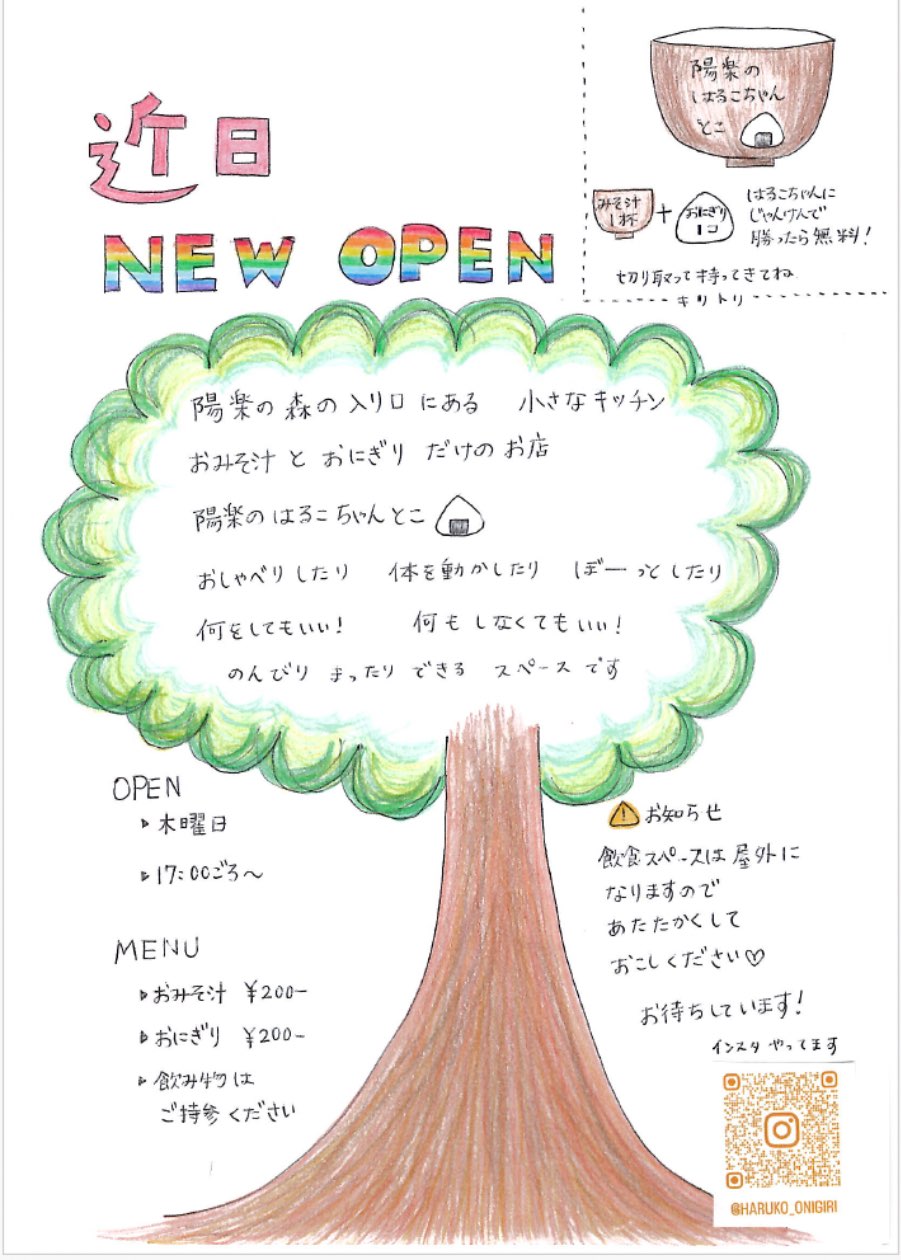 近日
NEW OPEN
陽楽の
はるこちゃん
とこ
みそ汁
1杯
+
おにぎり
1コ
はるこちゃんに
じゃんけんで
勝ったら無料!
切り取って持ってきてね
キリトリ
陽楽の森の入り口にある 小さなキッチン
おみそ汁と おにぎり だけの お店
陽楽の はるこちゃんとこ
おしゃべりしたり 体を動かしたり ぼーっとしたり
何をしてもいい! 何も しなくてもいい!
のんびり まったり できる スペースです
OPEN
▷木曜日
▷17:00ごろ〜
MENU
▷おみそ汁 ¥200-
▷おにぎり ¥200-
▷飲み物は
ご持参ください
お知らせ
飲食スペースは屋外に
なりますので
あたたかくして
おこしください♡
お待ちしています!
インスタ やってます
@HARUKO_ONIGIRI